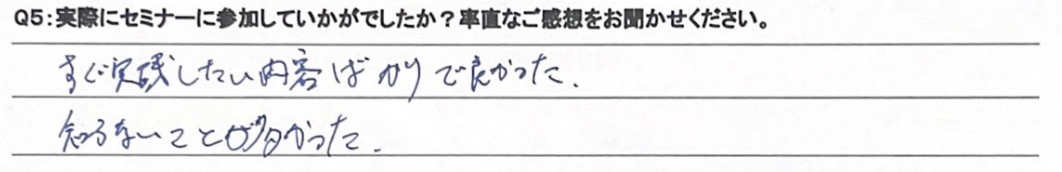 Q5:実際にセミナーに参加していかがでしたか？率直なご感想をお聞かせください。
すぐ実践したい内容ばかりで良かった.
知らないことが多かった.